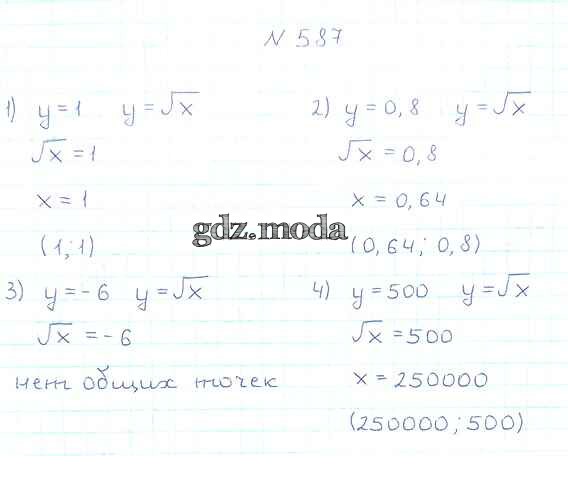 N 587
1) y = 1 y = √x
√x = 1
x = 1
(1; 1)
2) y = 0,8 y = √x
√x = 0,8
x = 0,64
(0,64; 0,8)
gdz.moda
3) y = - 6 y = √x
√x = - 6
нет общих точек
4) y = 500 y = √x
√x = 500
x = 250000
(250000; 500)